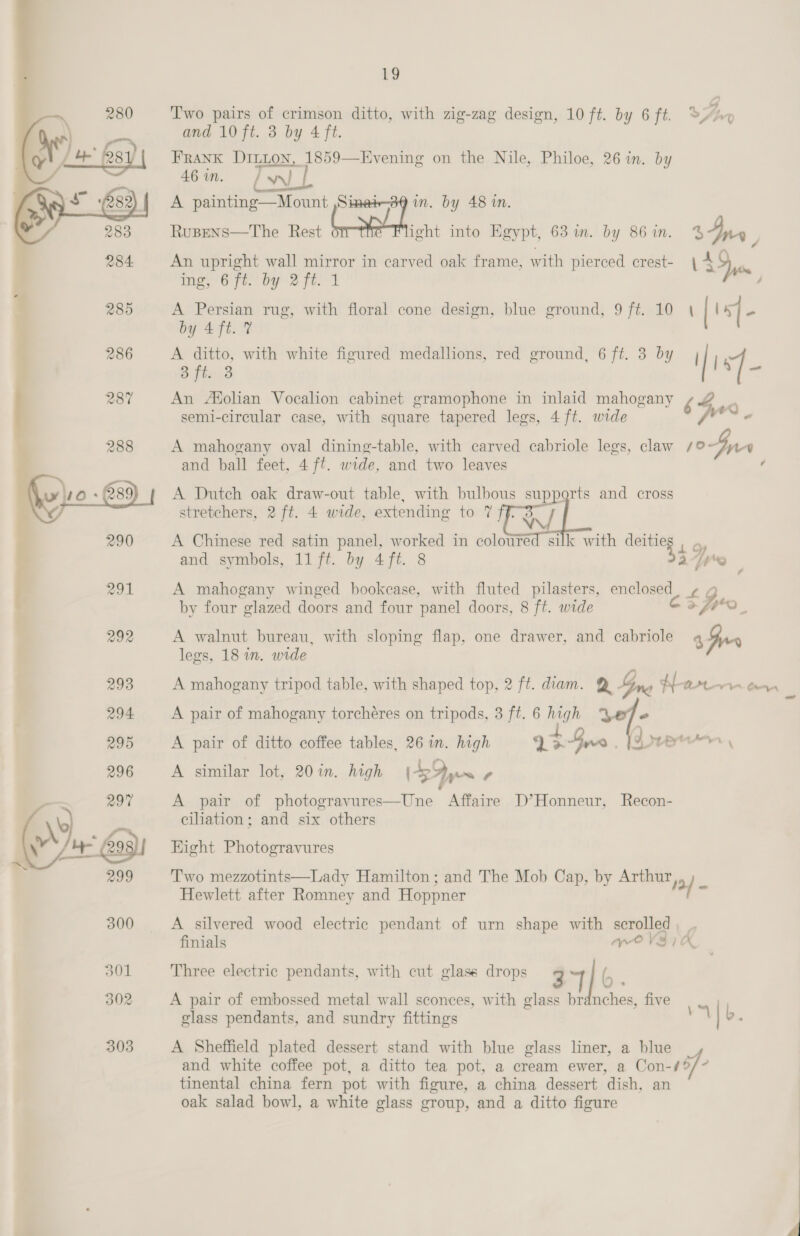 19
280 Two pairs of crimson ditto, with zig-zag design, 10 ft. by 6 ft.
and 10 ft. 3 by 4 ft.
281 FRANK DILLON, 1859—Evening on the Nile, Philoe, 26 in. by
46 in.
282 A painting—Mount Sinai—39 in. by 48 in.
283 RUBENS—The Rest on the Flight into Egypt, 63 in. by 86 in. 3 Gns
284 An upright wall mirror in carved oak frame, with pierced crest-
ing, 6 ft. by 2 ft. 1
285 A Persian rug, with floral cone design, blue ground, 9 ft. 10
by 4 ft. 7
286 A ditto, with white figured medallions, red ground, 6 ft. 3 by
3 ft. 3
287 An Æolian Vocalion cabinet gramophone in inlaid mahogany
semi-circular case, with square tapered legs, 4 ft. wide
288 A mahogany oval dining-table, with carved cabriole legs, claw 10 Gns
and ball feet, 4 ft. wide, and two leaves
289 A Dutch oak draw-out table, with bulbous supports and cross
stretchers, 2 ft. 4 wide, extending to 7 ft. 3
290 A Chinese red satin panel, worked in coloured silk with deities
and symbols, 11 ft. by 4 ft. 8
291 A mahogany winged bookcase, with fluted pilasters, enclosed
by four glazed doors and four panel doors, 8 ft. wide
292 A walnut bureau, with sloping flap, one drawer, and cabriole
legs, 18 in. wide
293 A mahogany tripod table, with shaped top, 2 ft. diam. 2 Gns
294 A pair of mahogany torchères on tripods, 3 ft. 6 high
295 A pair of ditto coffee tables, 26 in. high
296 A similar lot, 20 in. high
297 A pair of photogravures—Une Affaire D'Honneur, Recon-
ciliation; and six others
298 Eight Photogravures
299 Two mezzotints—Lady Hamilton; and The Mob Cap, by Arthur
Hewlett after Romney and Hoppner
300 A silvered wood electric pendant of urn shape with scrolled
finials
301 Three electric pendants, with cut glass drops 37/6.
302 A pair of embossed metal wall sconces, with glass branches, five
glass pendants, and sundry fittings
303 A Sheffield plated dessert stand with blue glass liner, a blue
and white coffee pot, a ditto tea pot, a cream ewer, a Con-
tinental china fern pot with figure, a china dessert dish, an
oak salad bowl, a white glass group, and a ditto figure